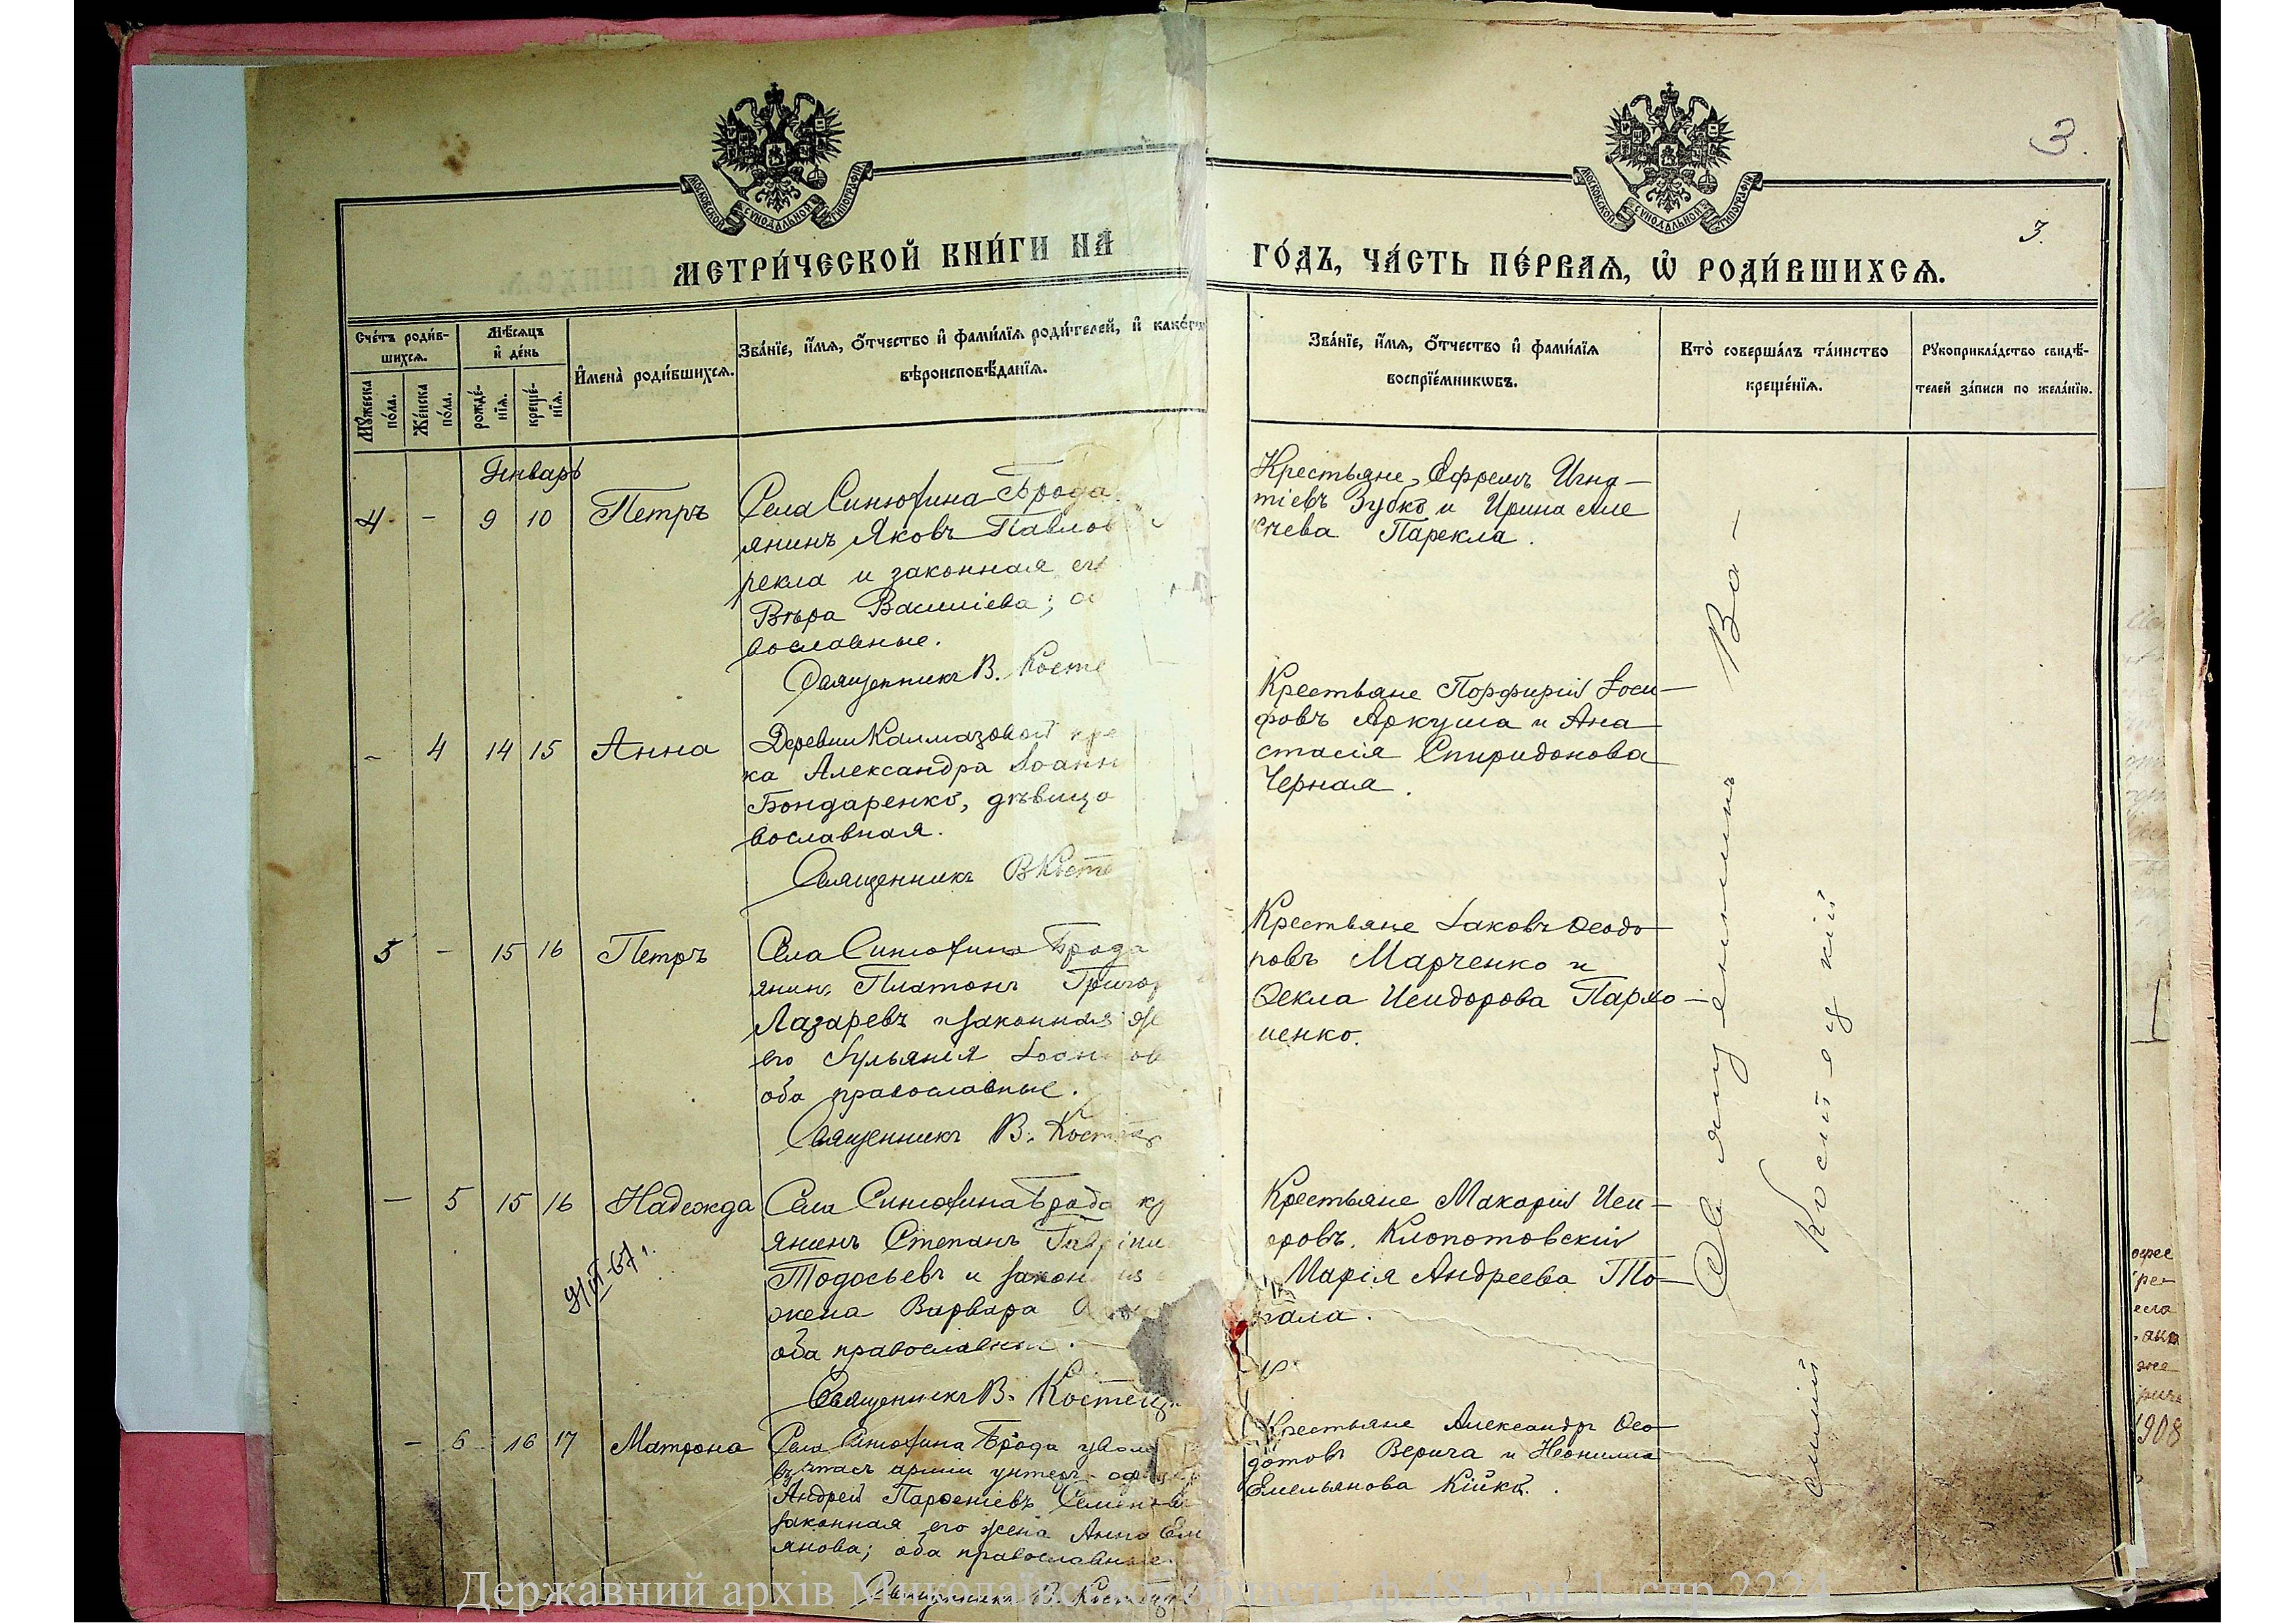 МОСКОВСКОЙ СѴНОДАЛЬНОЙ ТИПОГРАФІИ
МОСКОВСКОЙ СѴНОДАЛЬНОЙ ТИПОГРАФІИ
3.
3.
МЕТРИ́ЧЕСКОЙ КНИ́ГИ НА
ГО́ДЪ, ЧА́СТЬ ПЕ́РВАѦ, Ѡ҆ РОДИ́ВШИХСѦ.
Сче́тъ роди́в-
шихсѧ.
Мꙋжеска
по́ла.
Же́нска
по́ла.
Мѣ́сѧцъ
и҆ де́нь
рожде́-
нїѧ.
креще́-
нїѧ.
И҆мена̀ роди́вшихсѧ.
Зва́нїе, и҆́мѧ, ѻ҆́тчество и҆ фами́лїѧ роди́телей, и҆ како́гѡ
вѣроисповѣ́данїѧ.
Зва́нїе, и҆́мѧ, ѻ҆́тчество и҆ фами́лїѧ
воспрїе́мникѡвъ.
Кто̀ соверша́лъ та́инство
креще́нїѧ.
Рꙋкоприкла́дство свидѣ́-
телей за́писи по жела́нїю.
Январь
4 - 9 10 Петръ
Села Синюхина-Брода
янинъ Яковъ Павлов
рекла и законная ег
Вѣра Василіева; о
вославные.
Священникъ В. Косте
Крестьяне Ефремъ Игна-
тіевъ Зубко и Ирина Але
Парекла.
- 4 14 15 Анна
Деревни Калмазовой кре
ка Александра Іоанн
Бондаренко, дѣвица
вославная.
Священникъ В Косте
Крестьяне Порфирій Іоси-
фовъ Аркуша и Ана
стасія Спиридонова
Черная.
5 - 15 16 Петръ
Села Синюхина Брода
янинъ Платонъ Григор
Лазаревъ и законная же
его Іульянія
оба православные.
Священникъ В. Костец
Крестьяне Іаковъ Ѳеодо
ровъ Марченко и
Ѳекла Исидорова Пархо-
менко.
- 5 15 16 Надежда
Села Синюхина Брода кр
янинъ Степанъ
Тодосьевъ и закон
жена Варвара
оба православны.
Священникъ В. Костец
Крестьяне Макарій Иси-
оровъ Клопотовскій
и Марія Андреева То-
кала.
- 6 16 17 Матрона
Села Синюхина Брода увол
въ запасъ арміи унтеръ-офицер
Андрей Парѳеніевъ
законная его жена Анна Емл
янова; оба православные.
Священникъ В. Костец
Крестьяне Александръ Ѳео
дотовъ Верича и Неонила
Емельянова Кійко.
Священникъ Ва-
силій
Костецкій
1908
Державний архів Миколаївської області, ф.484, оп.1, спр.2224